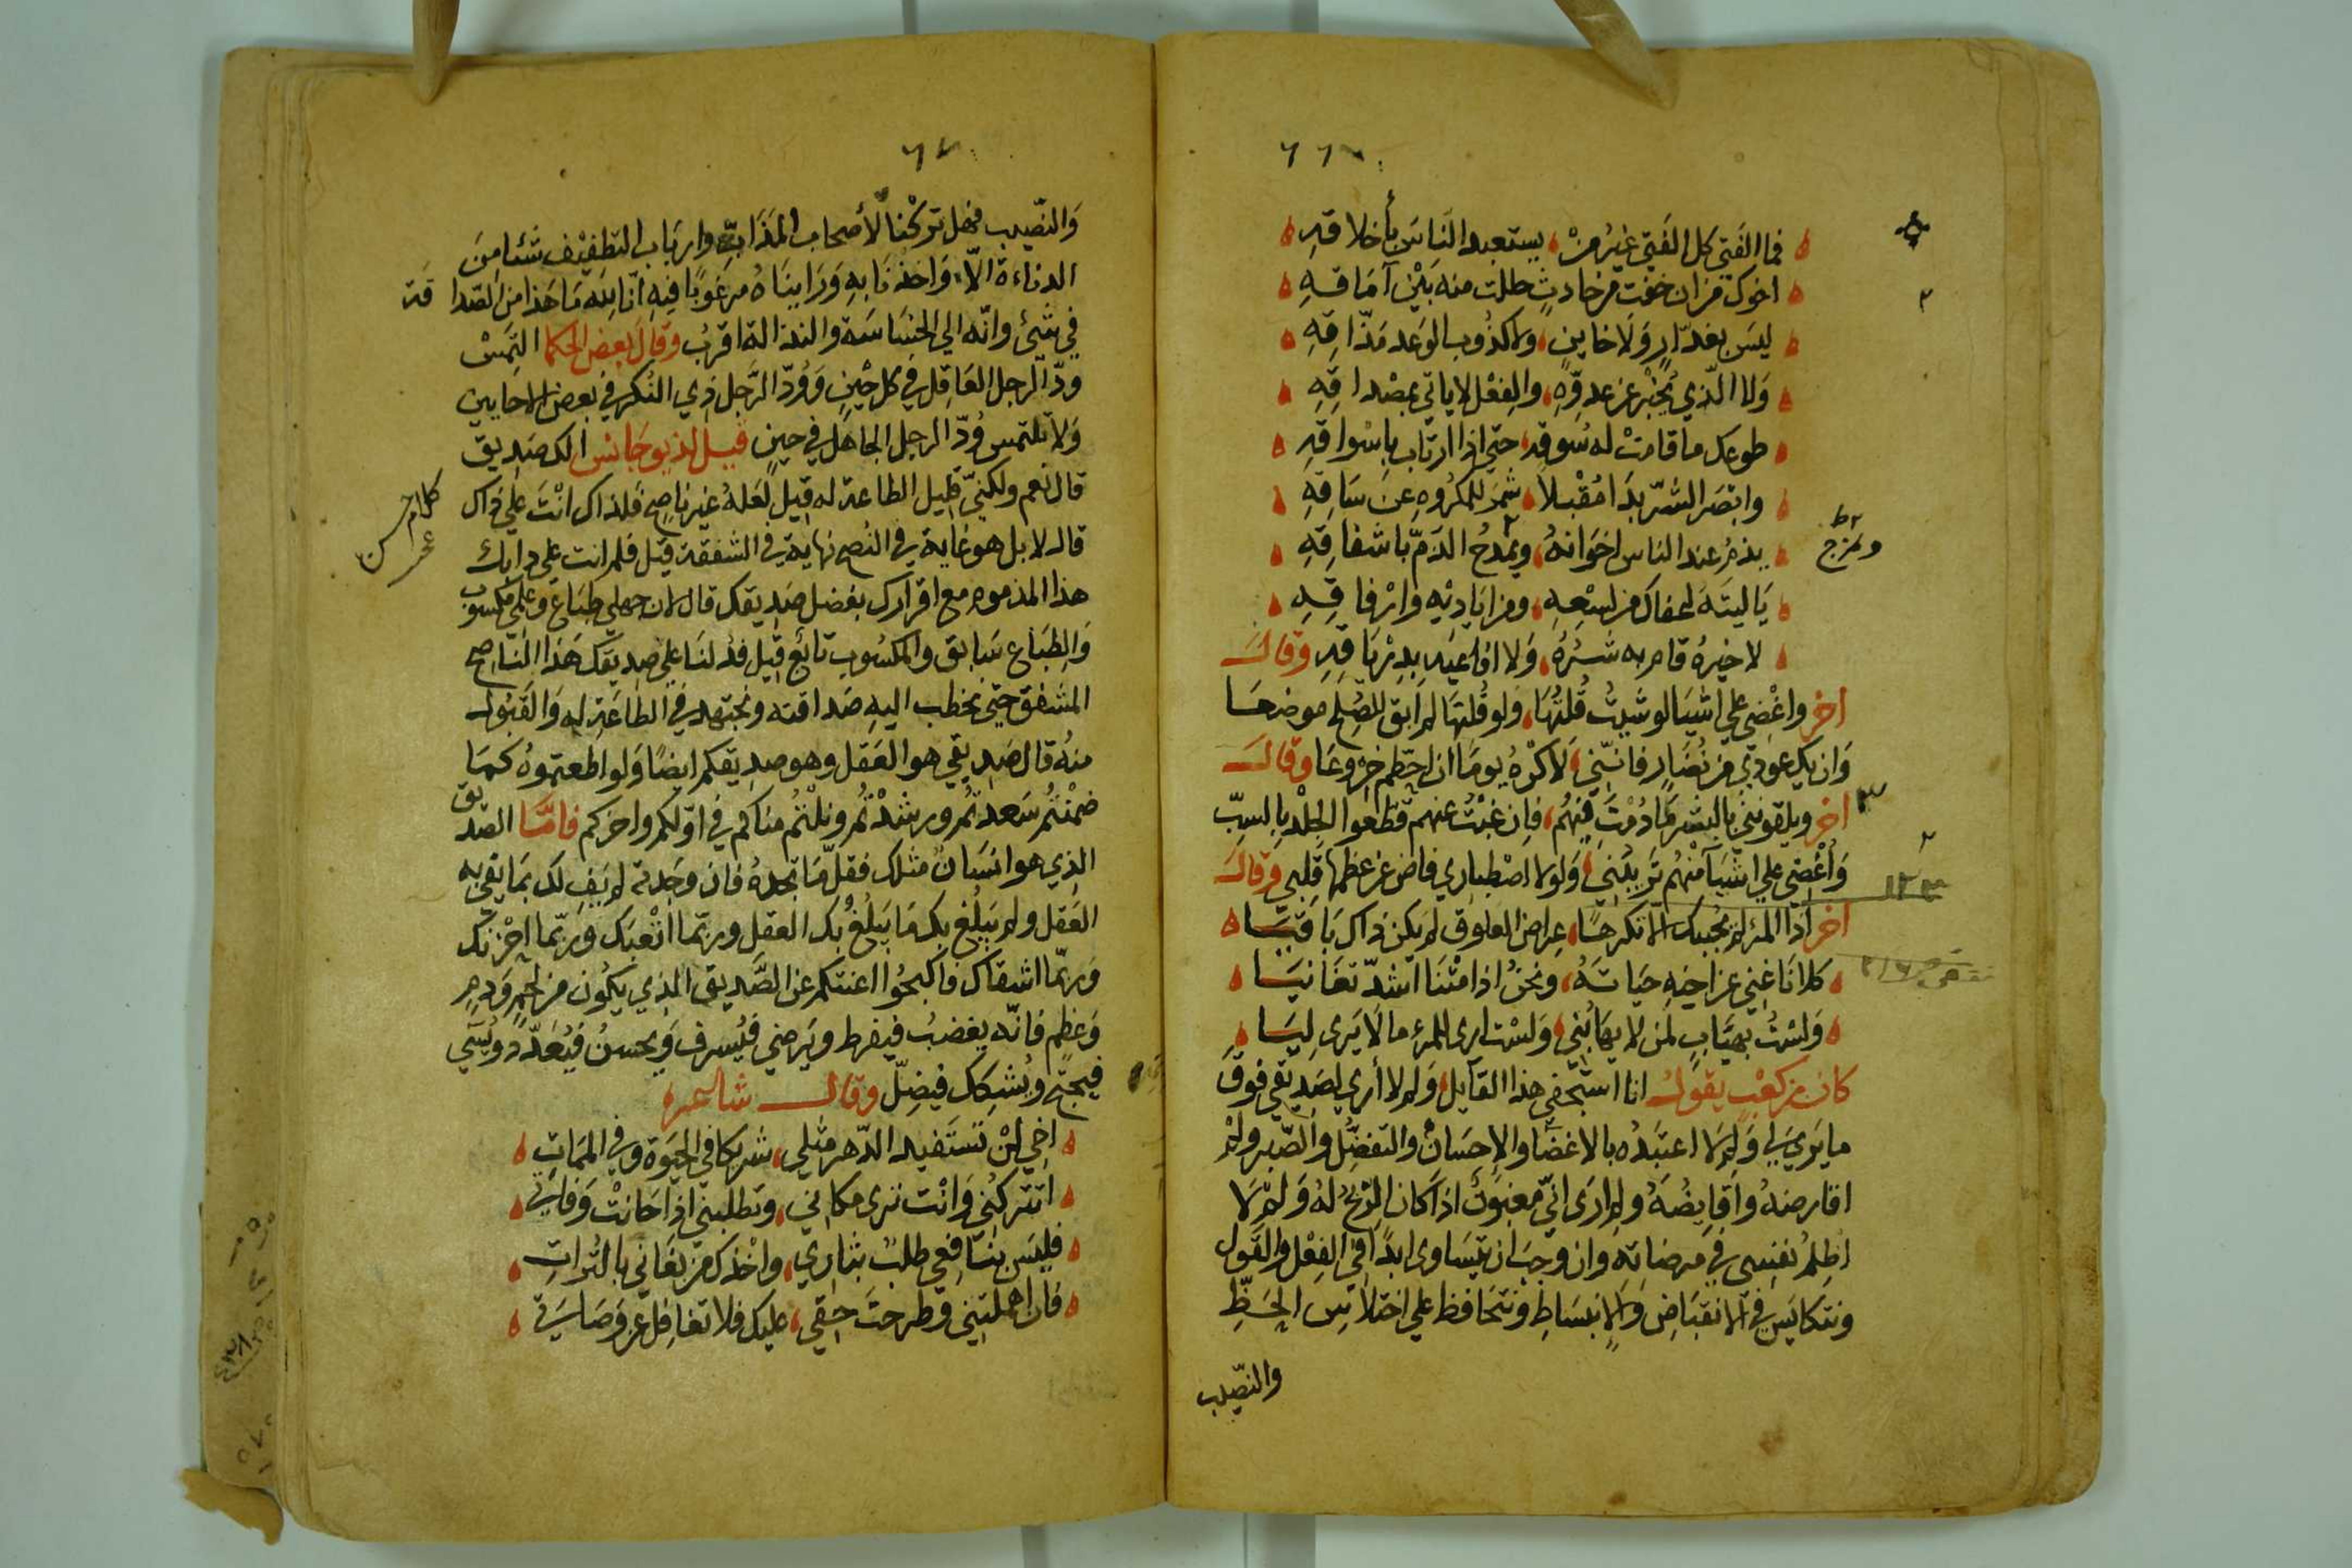 ٦٦
فما الفَتي كل الفَتي غيرُ مِنْ، يستعبد الناسَ بأخلاقهِ
اخوك من ان خفت من حادثٍ حللت منه بَيْنَ آمَاقهِ
ليسَ بغدّارٍ وَلَا خاينٍ، ولا كذُوب الوَعد مَذّاقِهِ
وَلا الّذي يُخبْرُ عن عدوِّهِ، والفعْل لا ياتي بمصْداقِهِ
طوعك ما قامتْ له سُوقه، حتي اذا ارتاب باسْواقِهِ
وابصَر الشّرّ بدَا مُقْبلاً، شمرَ للمكرُوهِ عنَ سَاقهِ
يذمُ عند الناس اخوَانهُ، ويمدحُ الذمّ باشفاقِهِ
ويمزج
يَاليتَهَ لعفاك من لسْعِهِ، ومن اياديْهِ وارْفاقِهِ
لا خيرهُ قام به شَرُّهُ، وَلا افاعيَه بدِرْيَاقِهِ وَقالَ
اخر واغْضي علي اشيَا لو شيتُ قُلتُهَا، ولو قُلتهَا لم ابق للصُلحِ موضعَا
وَان يك عودي من نُضَارٍ فانّني، لَأكْرهُ يومًا ان احطّم خِرْوعَا وقالَ
اخر ويلقونني بالبشر مَا دُمْتَ فيْهمُ، فان غبْتُ عنهم قطعوا الجِلْدَ بالسبِّ
وَأُغْضي علي اشيَآ مِنْهُم تَريبُني، وَلولا اصْطباري فاض من عظمها قلبي وقالَ
اخر اذا المرُ لم يحببكَ الا تكرهًا، عِراض العَلوق لم يكن ذاك بَاقيَا
كلانَا غني عن اخيْهِ حيَاتَهُ، ونحنُ اذا متْنَا اشدّ تغَانيَا
وَلسْتُ بهيّابٍ لمن لا يهَابُني، وَلسْت ارى للمرءِ ما لَا يَرى ليَا
كان بن كعْب يقولُ انا استجفي هذا القآيل، وَلم لا أري لصَديقي فوقَ
ما يرَي لي وَلم لا اعتَبدُه بالاغضَا والاحسَانْ والتفضّل والصّبر ولمْ
اقارضهُ واقَايضُهُ ولم ارَى انّي مغبوَنٌ اذا كان الرِّبحُ لهُ وَلمْ لَا
اظِلمُ نفسِى في مرضاتهِ وان وجبَ ان يتسَاوى ابدًا في الفِعْلِ والقَول
ونتكايَسَ في الانقبَاضِ وَالانبسَاطِ ونتحَافظ علي اختلاسِ الحَظِّ
والنصّيب
٦٧
وَالنصّيب فهل ترَكْنا لأصحاب المَذَابّةِ وارباب التطفيْف شَئا مِنَ
الدناءة الاّ وَاخذنَا بهِ وَرَاينَاهُ مرغوبًا فيْهِ انّا لله مَا هَذا من الصّداقة
في شيئ وانّه الي الخسَاسَة والنذالة اقربُ وقَالَ بعض الحُكما التمسْ
ودّ الرجل العَاقِل في كل حيْنٍ وَوُدّ الرَّجل ذي النُكر في بعض الاحايين
وَلا تلتمس وُدّ الرجل الجاهَل في حينٍ قيل لديوجَانس الك صَدِيق
قال نعم ولكنيّ قليل الطاعة له قيل لعَلهُ غير ناصِحٍ فلذاك انْتَ علي ذاك
كلام حسن
قال لا بل هو غاية في النُصح نهاية في الشفقة قيْل فلم انت علي دابك
هذا المذموم مع اقرارك بفضل صَديقك قال لان جهلي طبَاع وعلمي مكسوب
وَالطبَاع سَابق والمكسُوب تابعٌ قيل فدُلنَا علي صدِيقك هَذا النَاصح
المشفق حتي نخطب اليهِ صَداقته ونجتهد في الطاعَةِ لهِ وَالقَبُول
منهُ قال صَدِيقي هو العَقل وهو صدِيقكم ايضًا وَلو اطعتموهُ كمَا
ضمْنتُم سَعدتُم ورشَدْتُم ونلْتُم مناكم في اوّلكم واخركم فامّا الصديق
الذي هو انسَانٌ مثلك فقلّ مَا تجدهُ فان وجَدته لم يفِ لك بمَا يفي به
العَقل ولم يَبلُغ بك مَا يَبلغُ بُك العقل وربّما اتْعبَك وَربّما احْزنك
وَربّما اشقاك فاكبحُوا اعنتكم عن الصَّدِيق الذي يكُون من لحمٍ ودمٍ
وَعظمٍ فانّه يغضبُ فيفرط ويَرضي فيُسرف وَيحسنُ فيُعَدّد ويُسي
فيحتج ويُشكِك فيضِلّ وقال شاعره
اخي لنْ تَستَفيد الدّهر مثلي، شريكا في الحيوةِ وفي المَمَاتِ
اتترَكني وَانْت ترى مكاني، وتطلبني اذا حَانتْ وَفاتي
فليسَ بنَافعي طلبٌ بثاري، واخْذك من بغَاني بالتُراتِ
فان اهملتني وطرحتَ حقي، عليك فلا تغافِل عن وَصَاتي